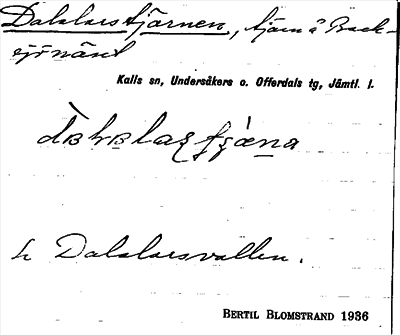 Dalalarstjärnen, tjärn å Back-
sjönäset
Kalls sn, Undersåkers o. Offerdals tg, Jämtl. l.
h Dalalarsvallen.
BERTIL BLOMSTRAND 1936